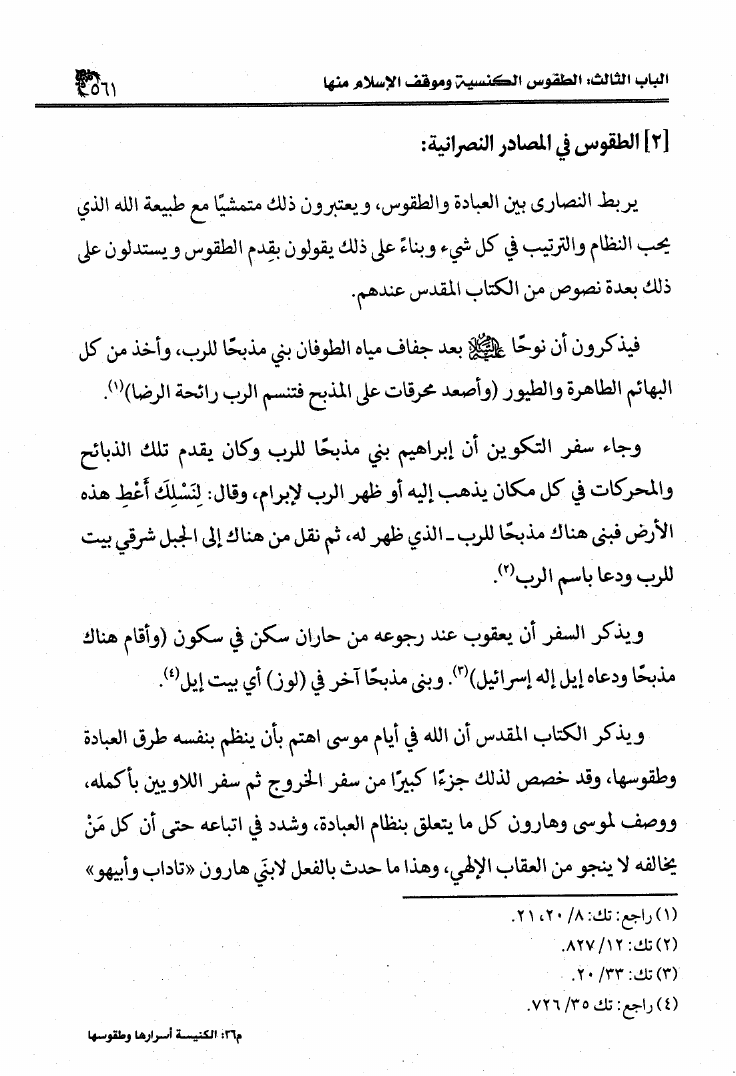 الباب الثالث: الطقوس الكنسية وموقف الإسلام منها
٥٦١
[٢] الطقوس في المصادر النصرانية:
يربط النصارى بين العبادة والطقوس، ويعتبرون ذلك متمشيًا مع طبيعة الله الذي
يحب النظام والترتيب في كل شيء وبناءً على ذلك يقولون بقِدم الطقوس ويستدلون على
ذلك بعدة نصوص من الكتاب المقدس عندهم.
فيذكرون أن نوحًا عليه السلام بعد جفاف مياه الطوفان بني مذبحًا للرب، وأخذ من كل
البهائم الطاهرة والطيور (وأصعد محرقات على المذبح فتنسم الرب رائحة الرضا)(١).
وجاء سفر التكوين أن إبراهيم بني مذبحًا للرب وكان يقدم تلك الذبائح
والمحركات في كل مكان يذهب إليه أو ظهر الرب لإبرام، وقال: لِنَسْلِكَ أَعْطِ هذه
الأرض فبنى هناك مذبحًا للرب - الذي ظهر له، ثم نقل من هناك إلى الجبل شرقي بيت
للرب ودعا باسم الرب(٢).
ويذكر السفر أن يعقوب عند رجوعه من حاران سكن في سكون (وأقام هناك
مذبحًا ودعاه إيل إله إسرائيل)(٣). وبنى مذبحًا آخر في (لوز) أي بيت إيل(٤).
ويذكر الكتاب المقدس أن الله في أيام موسى اهتم بأن ينظم بنفسه طرق العبادة
وطقوسها، وقد خصص لذلك جزءًا كبيرًا من سفر الخروج ثم سفر اللاويين بأكمله،
ووصف لموسى وهارون كل ما يتعلق بنظام العبادة، وشدد في اتباعه حتى أن كل مَنْ
يخالفه لا ينجو من العقاب الإلهي، وهذا ما حدث بالفعل لابنَي هارون «تاداب وأبيهو»
(١) راجع: تك: ٨/ ٢٠، ٢١.
(٢) تك: ١٢/ ٨٢٧.
(٣) تك: ٣٣/ ٢٠.
(٤) راجع: تك ٣٥/ ٧٢٦.
م٣٦: الكنيسة أسرارها وطقوسها